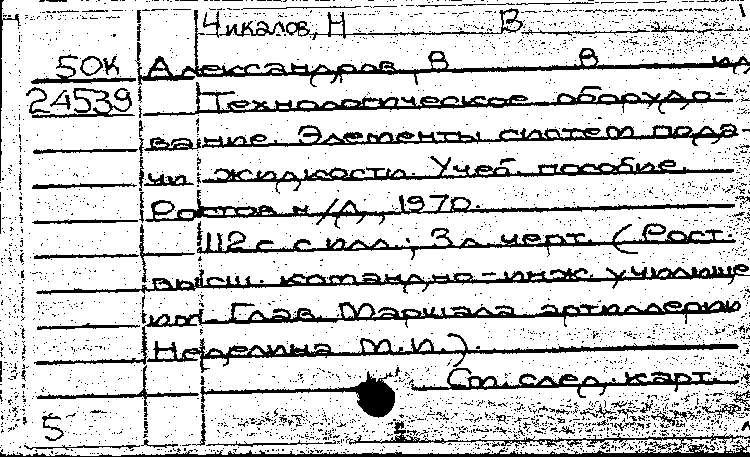 Чикалов, Н В
50К Александров, В В и д
24539 Технологическое оборудо-
вание. Элементы систем пода-
чи жидкости. Учеб. пособие.
Ростов н/Д, 1970.
112 с. с илл.; 3 л. черт. (Рост.
высш. командно-инж. училище
им. Глав. Маршала артиллерии
Неделина М.И.).
См. след. карт.
5